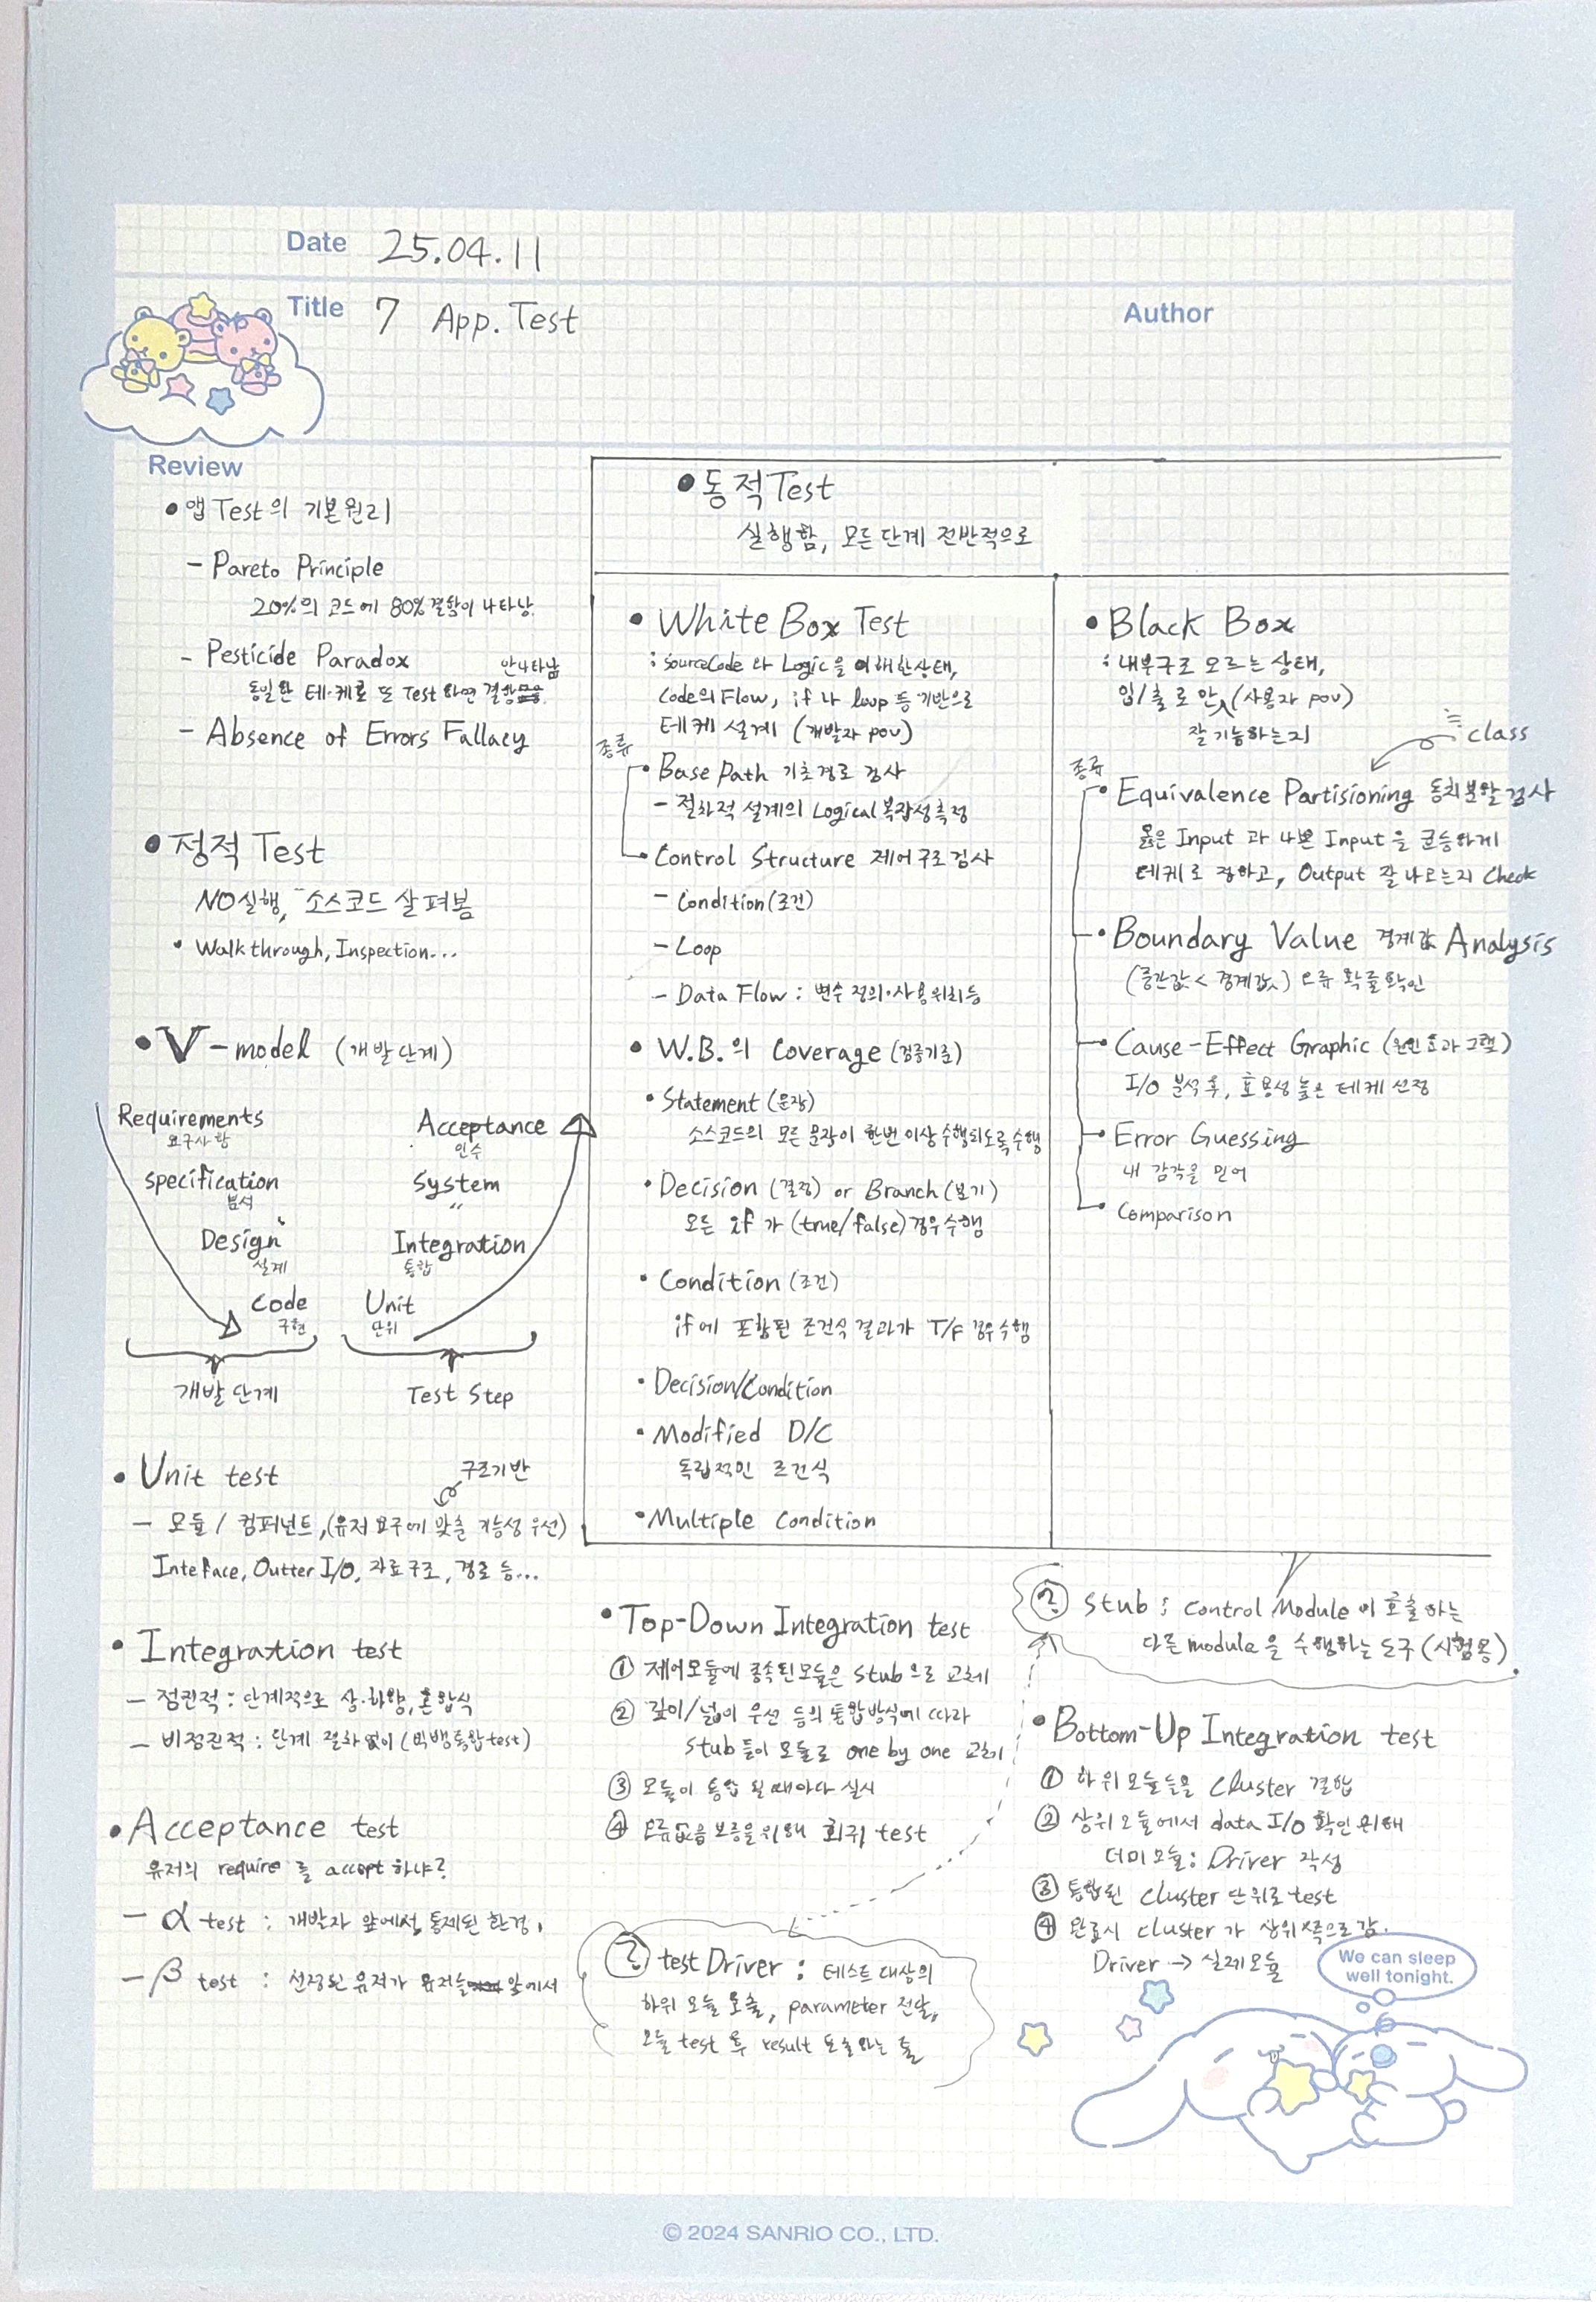 Date 25.04.11
Title 7 App. Test
Author
Review
• 앱 Test의 기본원리
- Pareto Principle
20%의 코드에 80% 결함이 나타남
- Pesticide Paradox
안나타남
동일한 테·케로 또 Test 하면 결함
- Absence of Errors Fallacy
• 정적 Test
NO실행, 소스코드 살펴봄
• Walkthrough, Inspection...
• V-model (개발단계)
Requirements
요구사항
Specification
분석
Design
설계
Code
구현
Acceptance
인수
System
〃
Integration
통합
Unit
단위
개발단계
Test Step
• Unit test
구조기반
- 모듈 / 컴퍼넌트, (유저 요구에 맞춘 기능성 우선)
Inteface, Outter I/O, 자료구조, 경로 등...
• Integration test
- 점진적 : 단계적으로 상·하향, 혼합식
- 비점진적 : 단계 절차 없이 (빅뱅통합test)
• Acceptance test
유저의 require 를 accept 하냐?
- α test : 개발자 앞에서, 통제된 환경,
- β test : 선정된 유저가 유저들 앞에서
• 동적 Test
실행함, 모든 단계 전반적으로
• White Box Test
: SourceCode 와 Logic을 이해한상태,
Code의 Flow, if 나 loop 등 기반으로
테케 설계 (개발자 pov)
종류
• Base Path 기초경로 검사
- 절차적 설계의 Logical 복잡성측정
• Control Structure 제어구조검사
- Condition (조건)
- Loop
- Data Flow : 변수 정의·사용위치등
• W.B.의 Coverage (검증기준)
• Statement (문장)
소스코드의 모든 문장이 한번 이상 수행되도록 수행
• Decision (결정) or Branch (분기)
모든 if 가 (true/false) 경우 수행
• Condition (조건)
if에 포함된 조건식 결과가 T/F 경우 수행
• Decision/Condition
• Modified D/C
독립적인 조건식
• Multiple Condition
• Black Box
: 내부구조 모르는 상태,
입/출로만 (사용자 pov)
잘 기능하는지
≒ class
종류
• Equivalence Partisioning 동치분할검사
옳은 Input 과 나쁜 Input 을 균등하게
테케로 정하고, Output 잘나오는지 Check
• Boundary Value 경계값 Analysis
(중간값 < 경계값) 오류 확률확인
• Cause-Effect Graphic (원인효과그래프)
I/O 분석 후, 효용성 높은 테케 선정
• Error Guessing
내 감각을 믿어
• Comparison
• Top-Down Integration test
① 제어모듈에 종속된모듈은 stub으로 교체
② 깊이/넓이 우선 등의 통합방식에 따라
stub들이 모듈로 one by one 교체
③ 모듈이 통합 될때마다 실시
④ 오류없음 보증을위해 회귀 test
? test Driver : 테스트 대상의
하위 모듈 호출, parameter 전달,
모듈 test 후 result 도출하는 툴
? Stub : Control Module 이 호출하는
다른 module 을 수행하는 도구 (시험용)
• Bottom-Up Integration test
① 하위모듈들을 Cluster 결합
② 상위모듈에서 data I/O 확인 위해
더미모듈 : Driver 작성
③ 통합된 Cluster 단위로 test
④ 완료시 cluster 가 상위쪽으로 감.
Driver → 실제모듈
We can sleep
well tonight.
© 2024 SANRIO CO., LTD.